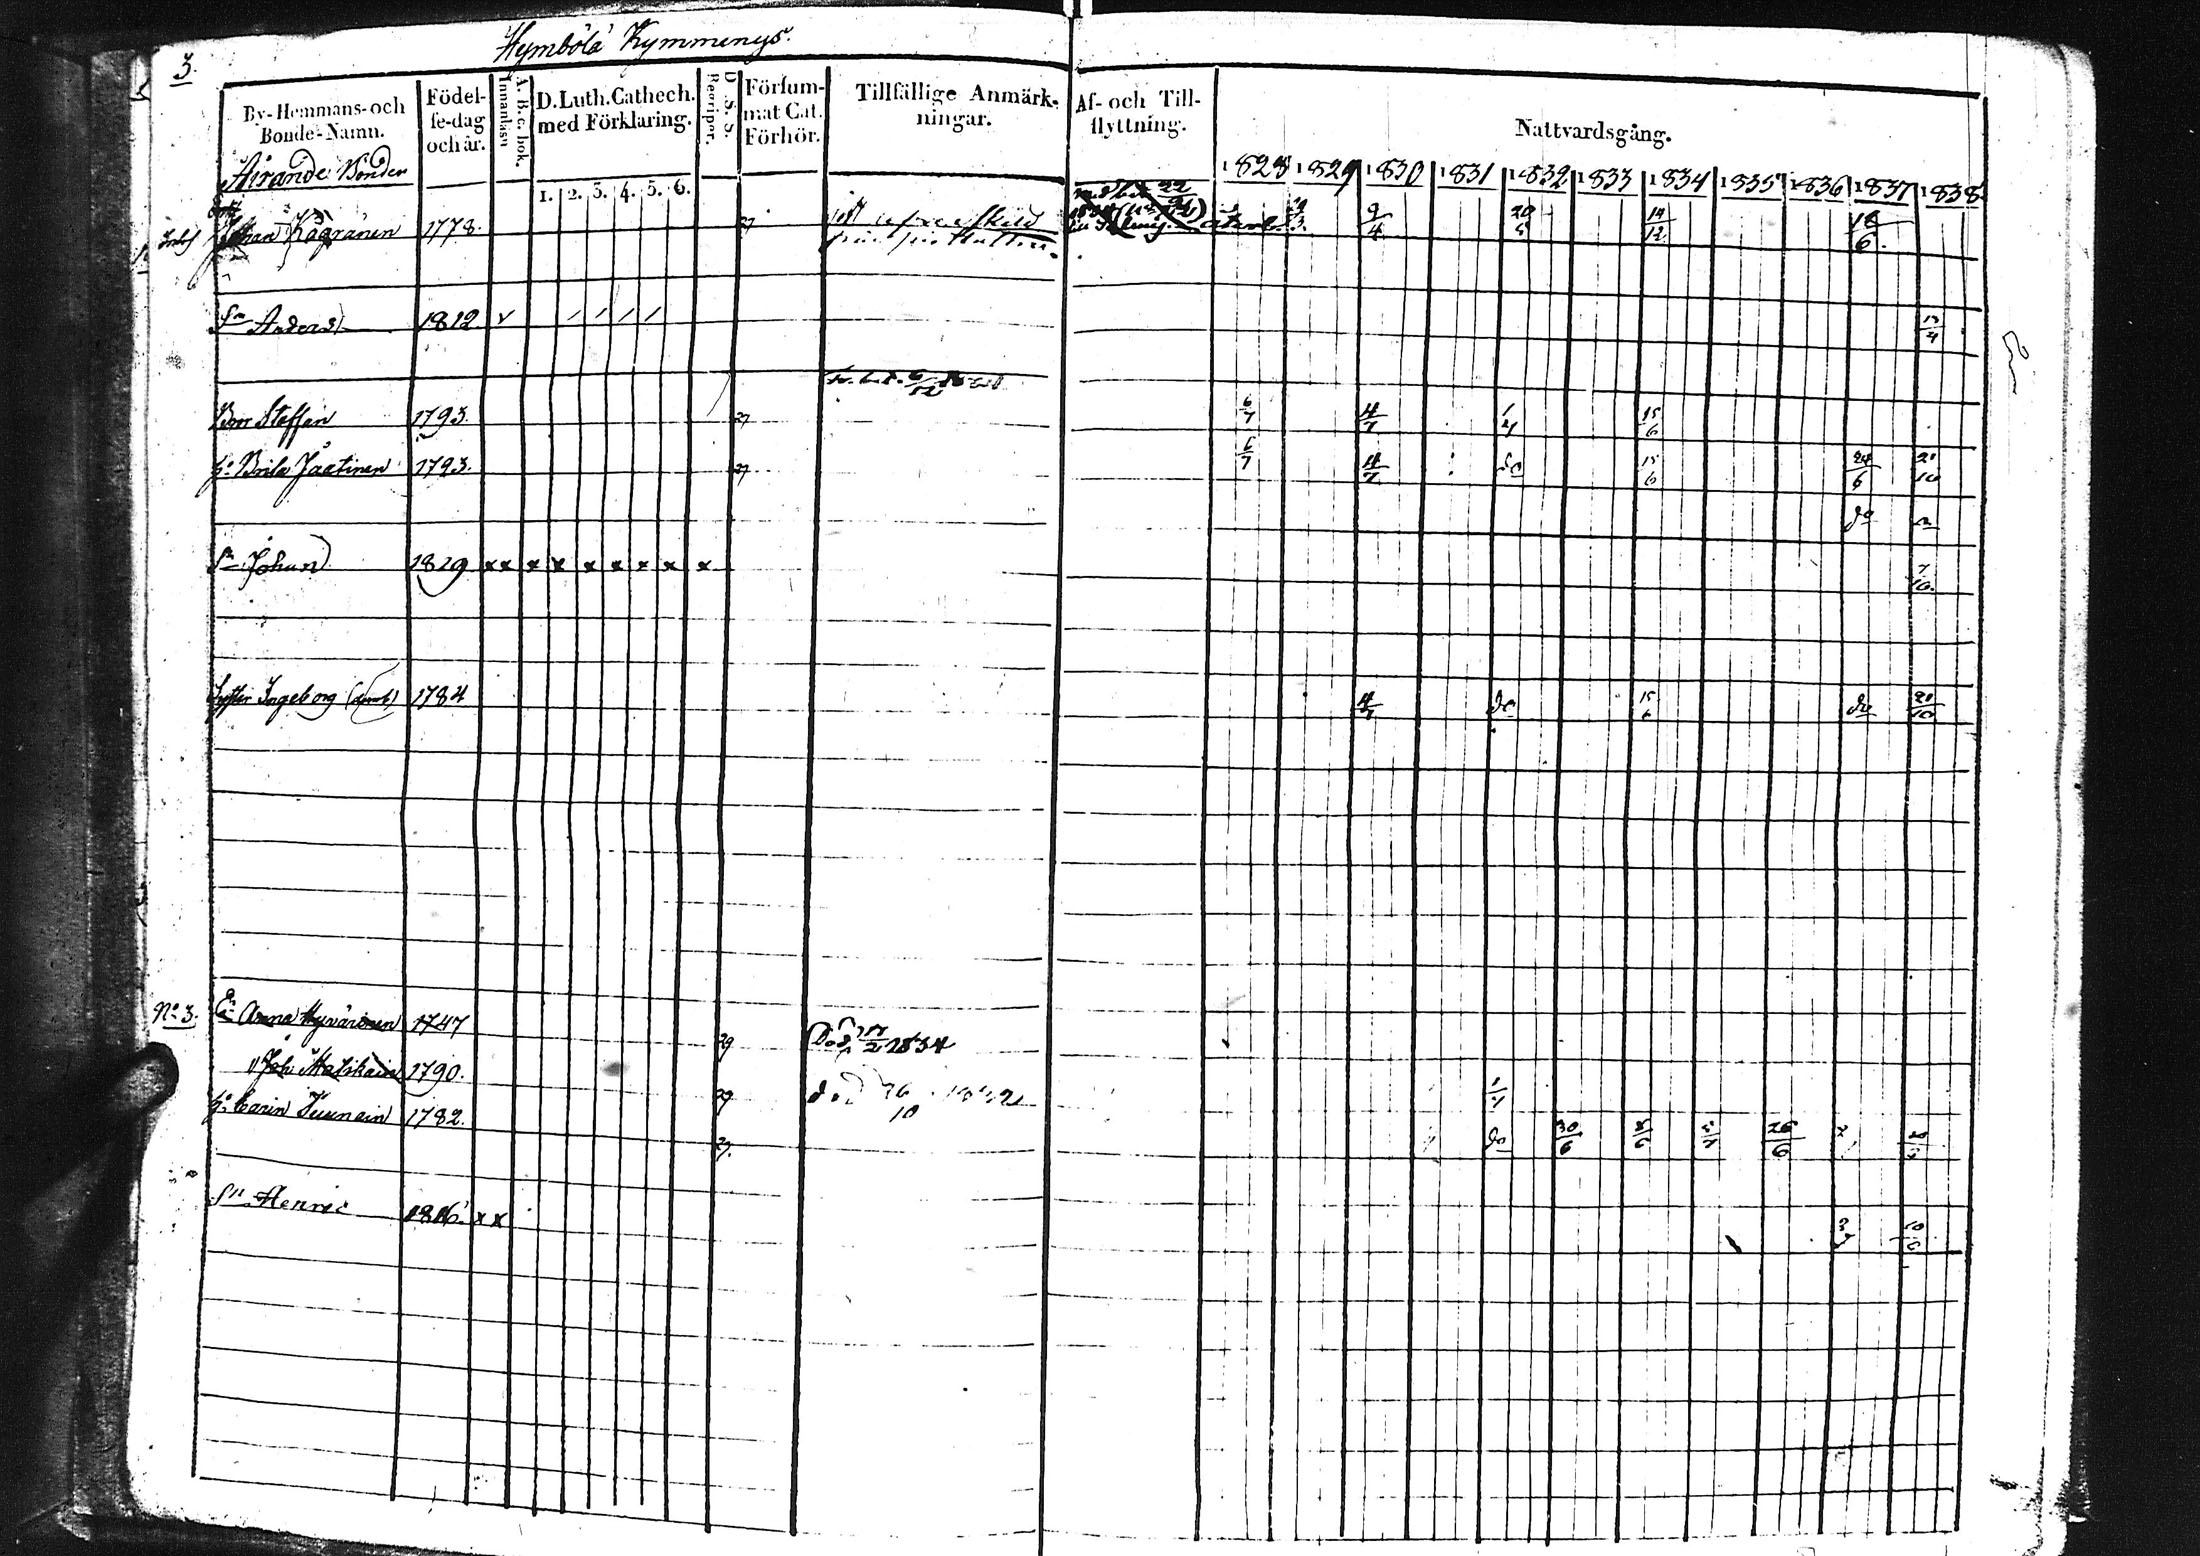 3.
Hymbölä Kymmenys.
By-Hemmans- och Bonde-Namn.
Födelse-dag och år.
Innanläsn
A. B. c. bok.
D. Luth. Cathech. med Förklaring.
1. 2. 3. 4. 5. 6.
D. S. S.
Begriper.
Försummat Cat. Förhör.
Tillfällige Anmärkningar.
Af- och Till-flyttning.
Nattvardsgång.
1828 1829 1830 1831 1832 1833 1834 1835 1836 1837 1838
Airande Bonden
Johan Kägränen 1778. 27 9/4 20/5 14/12 18/6.
Sn Anders 1812 v / / / / 13/4
Bror Steffan 1793. 27 6/7 4/7 1/4 15/6
h: Brita Jäätinen 1793. 27 6/7 4/7 do 15/6 24/6 20/10
do
Sn Johan 1829 x x x x x x x x x 7/10.
Syster Ingeborg 1784 4/7 do 15/6 do 20/10
No 3. Ea Anna Hyväroinen 1747 29 Död 17/2 1834
Joh: Matikain 1790. 29 död 26/10 1832 1/4
h: Carin Juunain 1782. 27. do 30/6 26/6
Sn Henric 1816. x x 3/7